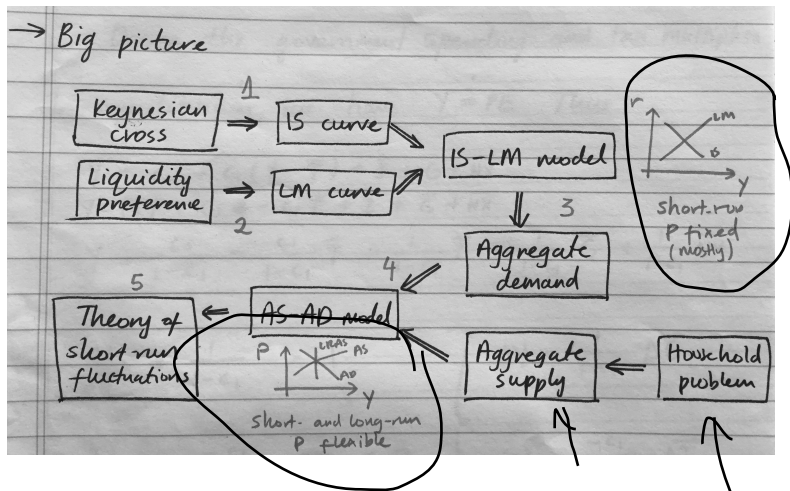 → Big picture
1
Keynesian
cross
IS curve
Liquidity
preference
LM curve
2
IS-LM model
3
r
LM
IS
Y
short-run
P fixed
(mostly)
Aggregate
demand
4
5
Theory of
short-run
fluctuations
AS-AD model
P
LRAS
AS
AD
Y
short- and long-run
P flexible
Aggregate
supply
Household
problem